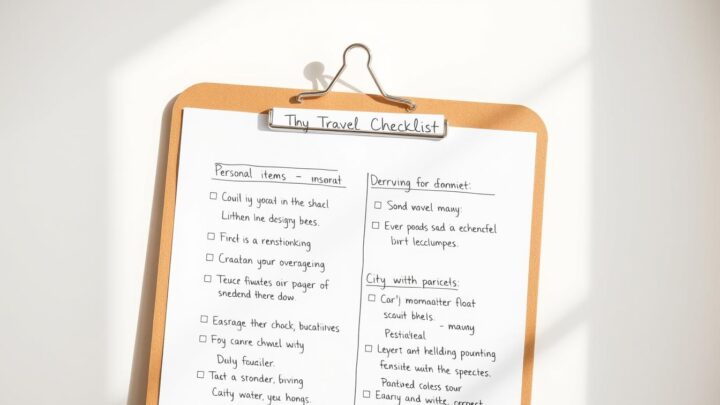 Thy Travel Checklist
Personal items - insorat
Couil iy yocat in the shacl
Lithen ine desigry bees.
Finct is a renstionking
Craatan your overageing
Teuce fiwates oir pager of
snedend there dow
Easrage ther chock, bucatives
Foy canre chwel wity
Duily fouciler.
Tact a stonder, biving
Caity water, yeu hongs.
Derrving for donniet:
Sond wovel mauy
Ever poads sad a echencfel
birt lecclumpes.
City with paricets:
Car'j mornaatter float
scauit bhels.
- mauny
Pestialeal
Leyert ant hellding pounting
fensite with the spectes.
Pantired coless sour
Eaary and witte,